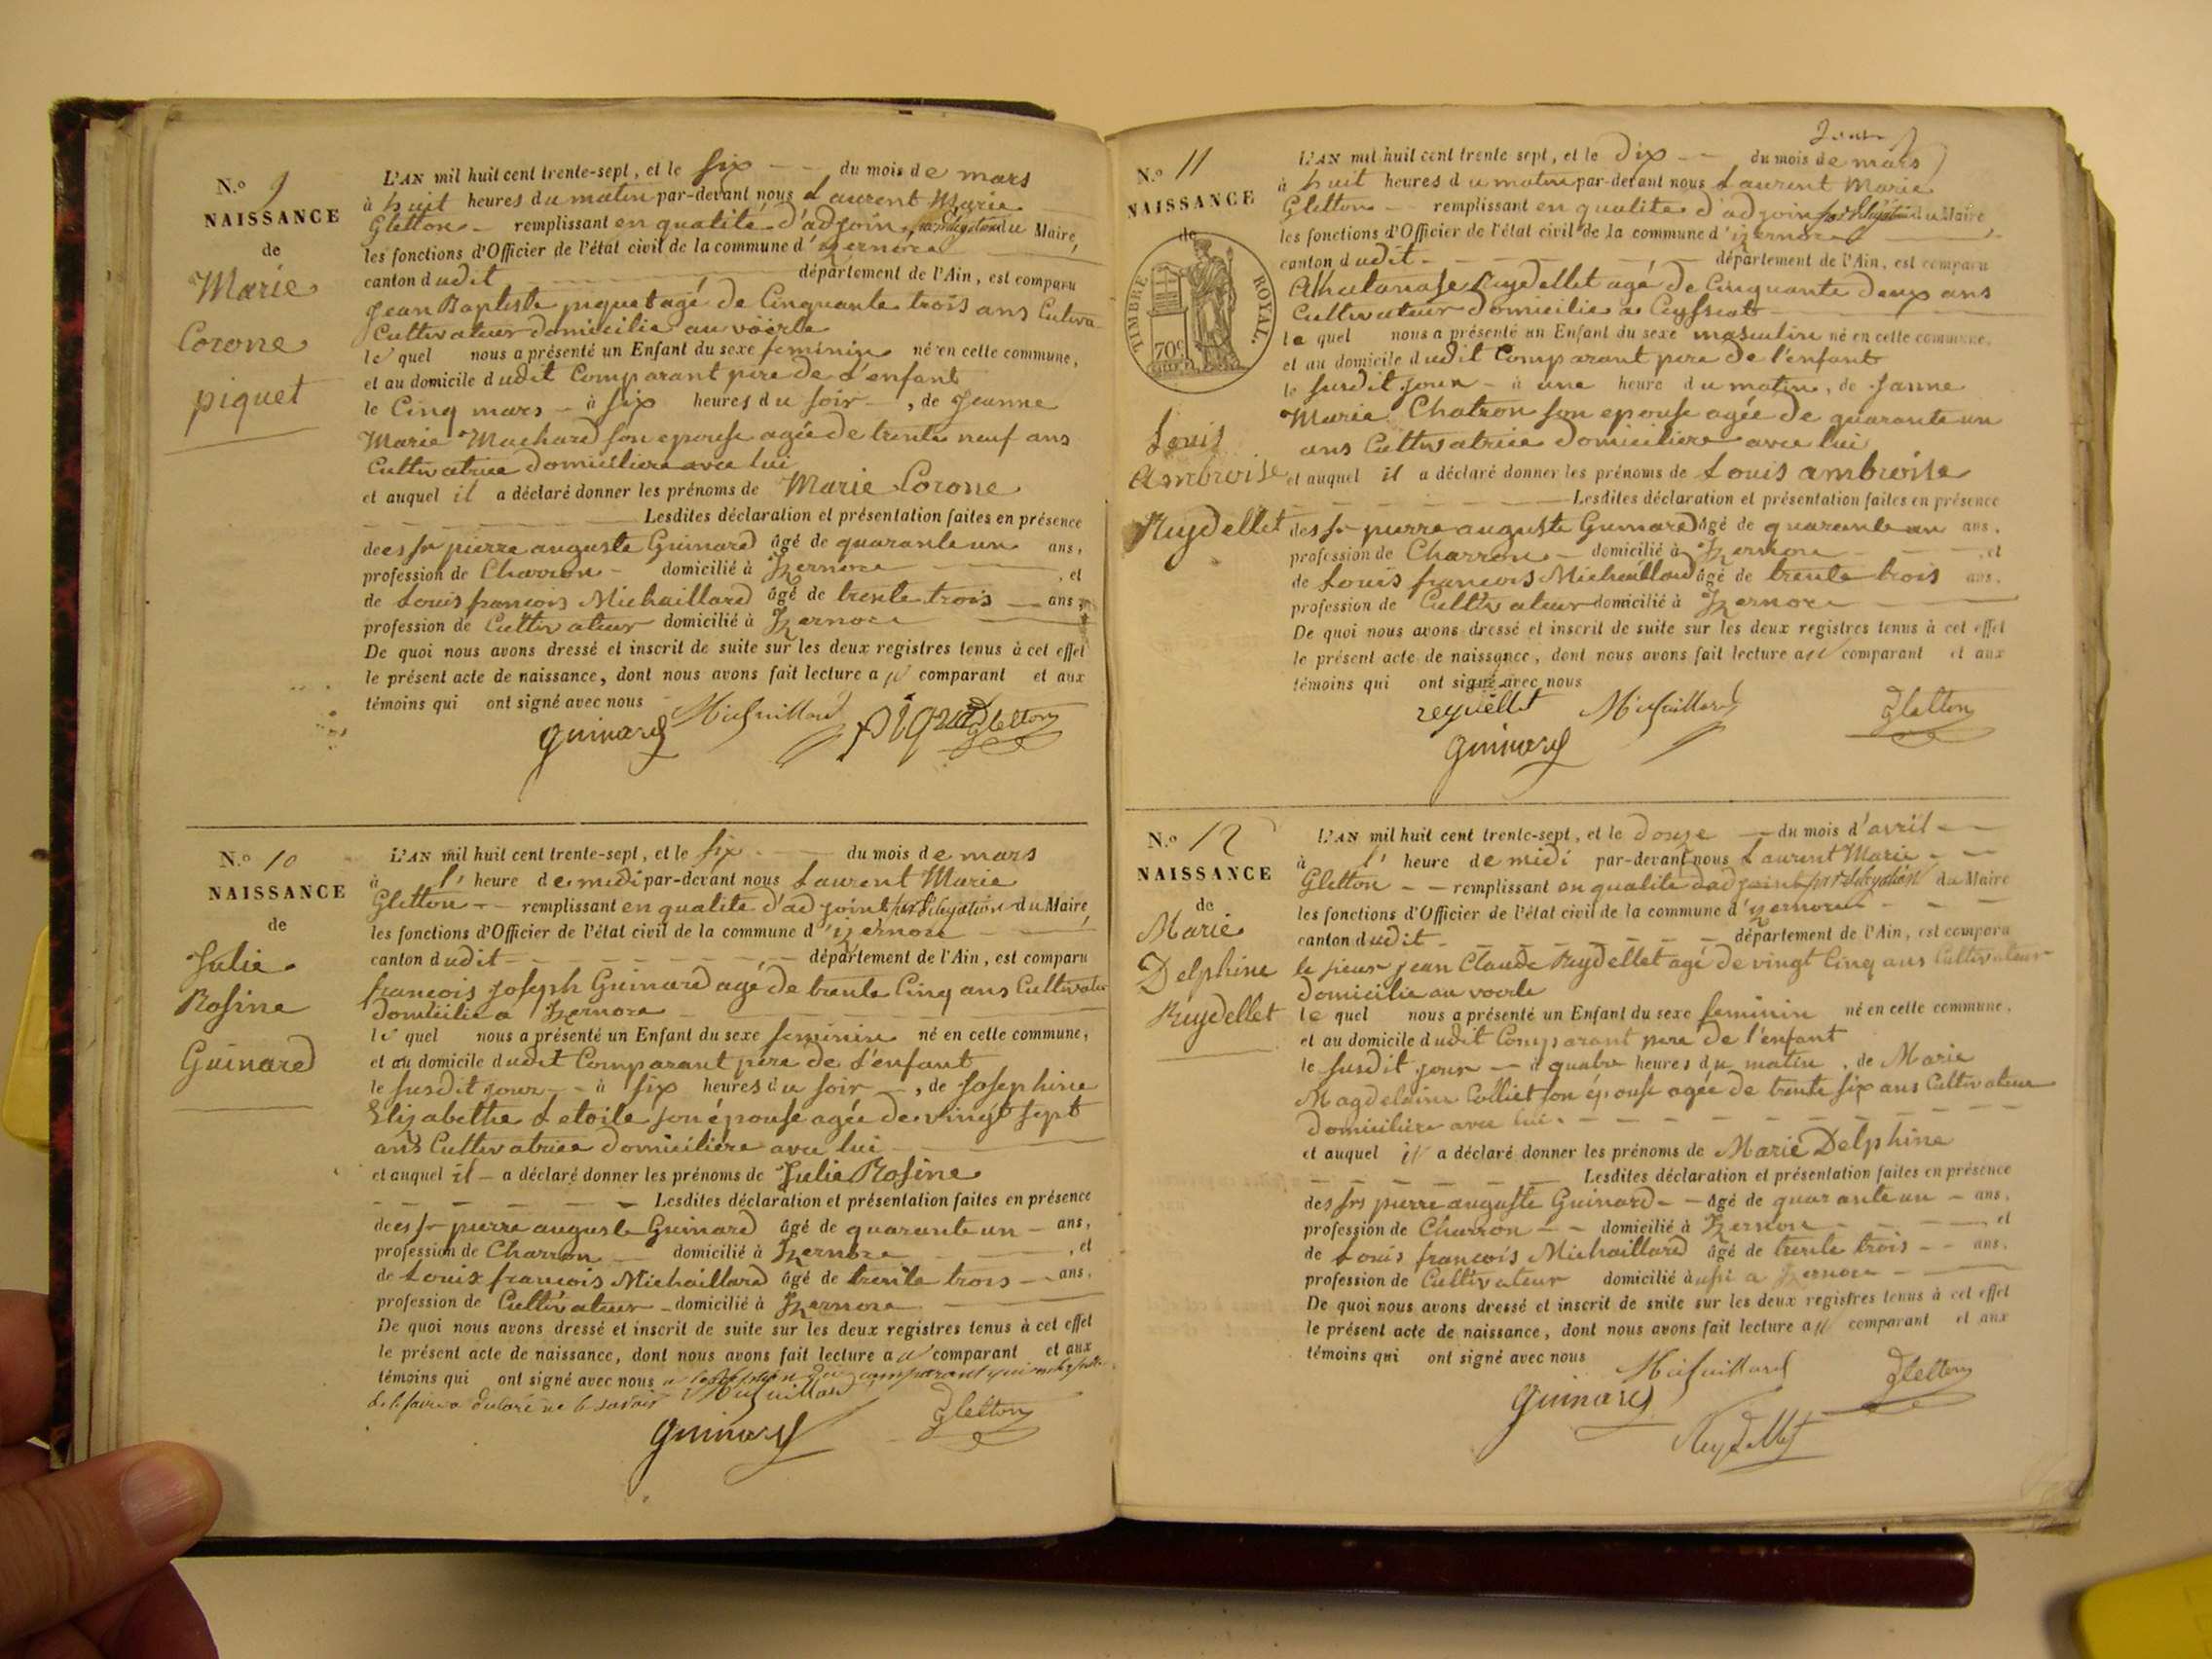 N.o 9
NAISSANCE
de
Marie
Corone
piquet
L'AN mil huit cent trente-sept, et le six du mois de mars
à huit heures du matin par-devant nous Laurent Marie
Gletton remplissant en qualité d'adjoin par délégation du Maire,
les fonctions d'Officier de l'état civil de la commune d'izernore
canton dudit département de l'Ain, est comparu
Jean Baptiste piquet agé de Cinquante trois ans Cultiva
Cultivateur domicilié au voërle
le quel nous a présenté un Enfant du sexe feminin né en cette commune,
et au domicile dudit Comparant pere de l'enfant
le Cinq mars à six heures du soir, de Jeanne
Marie Machard son epouse agée de trente neuf ans
Cultivatrice domiciliere avec lui
et auquel il a déclaré donner les prénoms de Marie Corone
Lesdites déclaration et présentation faites en présence
dees sr pierre auguste Guinard âgé de quarante un ans,
profession de Charron domicilié à Izernore, et
de Louis francois Michaillard âgé de trente trois ans,
profession de Cultivateur domicilié à Izernore
De quoi nous avons dressé et inscrit de suite sur les deux registres tenus à cet effet
le présent acte de naissance, dont nous avons fait lecture au comparant et aux
témoins qui ont signé avec nous
guinard Michaillard piquet Gletton
N.o 10
NAISSANCE
de
Julie
Rosine
Guinard
L'AN mil huit cent trente-sept, et le six du mois de mars
à l' heure de midi par-devant nous Laurent Marie
Gletton remplissant en qualité d'adjoint par délégation du Maire,
les fonctions d'Officier de l'état civil de la commune d'izernore
canton dudit département de l'Ain, est comparu
francois Joseph Guinard agé de trente Cinq ans Cultivateur
domicilié a Izernore
le quel nous a présenté un Enfant du sexe feminin né en cette commune,
et au domicile dudit Comparant pere de l'enfant
le susdit jour à six heures du soir, de Josephine
Elizabethe Letoile son épouse agée de vingt sept
ans Cultivatrice domiciliere avec lui
et auquel il a déclaré donner les prénoms de Julie Rosine
Lesdites déclaration et présentation faites en présence
dees sr pierre auguste Guinard âgé de quarante un ans,
profession de Charron domicilié à Izernore, et
de Louis francois Michaillard âgé de trente trois ans,
profession de Cultivateur domicilié à Izernore
De quoi nous avons dressé et inscrit de suite sur les deux registres tenus à cet effet
le présent acte de naissance, dont nous avons fait lecture au comparant et aux
témoins qui ont signé avec nous a l'exception du comparant qui
de le faire a declaré ne le savoir Michaillard
guinard Gletton
N.o 11
NAISSANCE
de
TIMBRE ROYAL.
70c
Louis
Ambroise
Ruydellet
L'AN mil huit cent trente sept, et le dix du mois de mars
à huit heures du matin par-devant nous Laurent Marie
Gletton remplissant en qualite d'adjoin par délégation du Maire,
les fonctions d'Officier de l'état civil de la commune d'izernore
canton dudit département de l'Ain, est comparu
Athalanase Ruydellet agé de Cinquante deux ans
Cultivateur domicilié a Ceyssiat
le quel nous a présenté un Enfant du sexe masculin né en cette commune,
et au domicile dudit Comparant pere de l'enfant
le susdit jour à une heure du matin, de Janne
Marie Chatron son epouse agée de quarante un
ans Cultivatrice domiciliere avec lui
et auquel il a déclaré donner les prénoms de Louis ambroise
Lesdites déclaration et présentation faites en présence
des sr pierre auguste Guinard âgé de quarante un ans,
profession de Charron domicilié à Izernore, et
de Louis francois Michaillard âgé de trente trois ans,
profession de Cultivateur domicilié à Izernore
De quoi nous avons dressé et inscrit de suite sur les deux registres tenus à cet effet
le présent acte de naissance, dont nous avons fait lecture au comparant et aux
témoins qui ont signé avec nous
Michaillard Gletton
guinard
N.o 12
NAISSANCE
de
Marie
Delphine
Ruydellet
L'AN mil huit cent trente-sept, et le douze du mois d'avril
à l' heure de midi par-devant nous Laurent Marie
Gletton remplissant en qualité d'adjoint par délégation du Maire
les fonctions d'Officier de l'état civil de la commune d'izernore
canton dudit département de l'Ain, est comparu
le sieur jean Claude Ruydellet agé de vingt Cinq ans Cultivateur
domicilié au voerle
le quel nous a présenté un Enfant du sexe feminin né en cette commune,
et au domicile dudit Comparant pere de l'enfant
le susdit jour à quatre heures du matin, de Marie
Magdelaine Colliet son épouse agée de trente six ans Cultivatrice
domiciliére avec lui
et auquel il a déclaré donner les prénoms de Marie Delphine
Lesdites déclaration et présentation faites en présence
des srs pierre auguste Guinard âgé de quarante un ans,
profession de Charron domicilié à Izernore et
de Louis francois Michaillard âgé de trente trois ans,
profession de Cultivateur domicilié à Izernore
De quoi nous avons dressé et inscrit de suite sur les deux registres tenus à cet effet
le présent acte de naissance, dont nous avons fait lecture au comparant et aux
témoins qui ont signé avec nous
Michaillard Gletton
guinard
Ruydellet